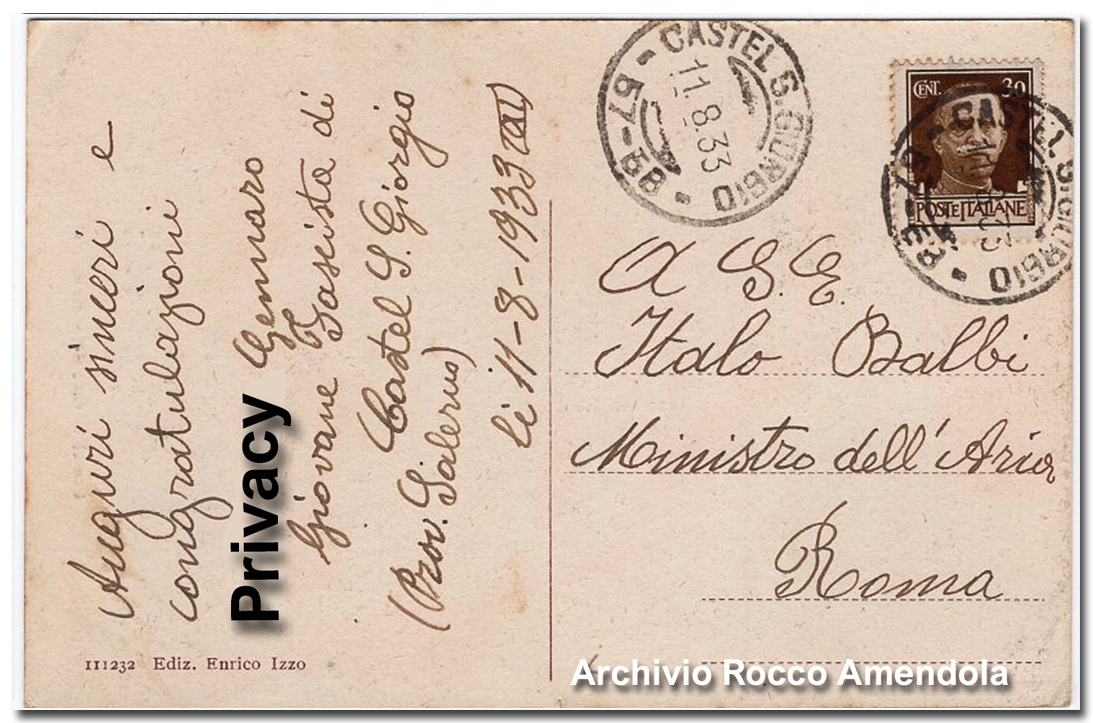 Auguri sinceri e
congratulazioni
Privacy Gennaro
Giovane Fascista di
Castel S. Giorgio
(Prov. Salerno)
li 11-8-1933
111232 Ediz. Enrico Izzo
CASTEL S. GIORGIO
11.8.33
CENT. 30
POSTE ITALIANE
CASTEL S. GIORGIO
A S. E.
Italo Balbi
Ministro dell'Aria
Roma
Archivio Rocco Amendola